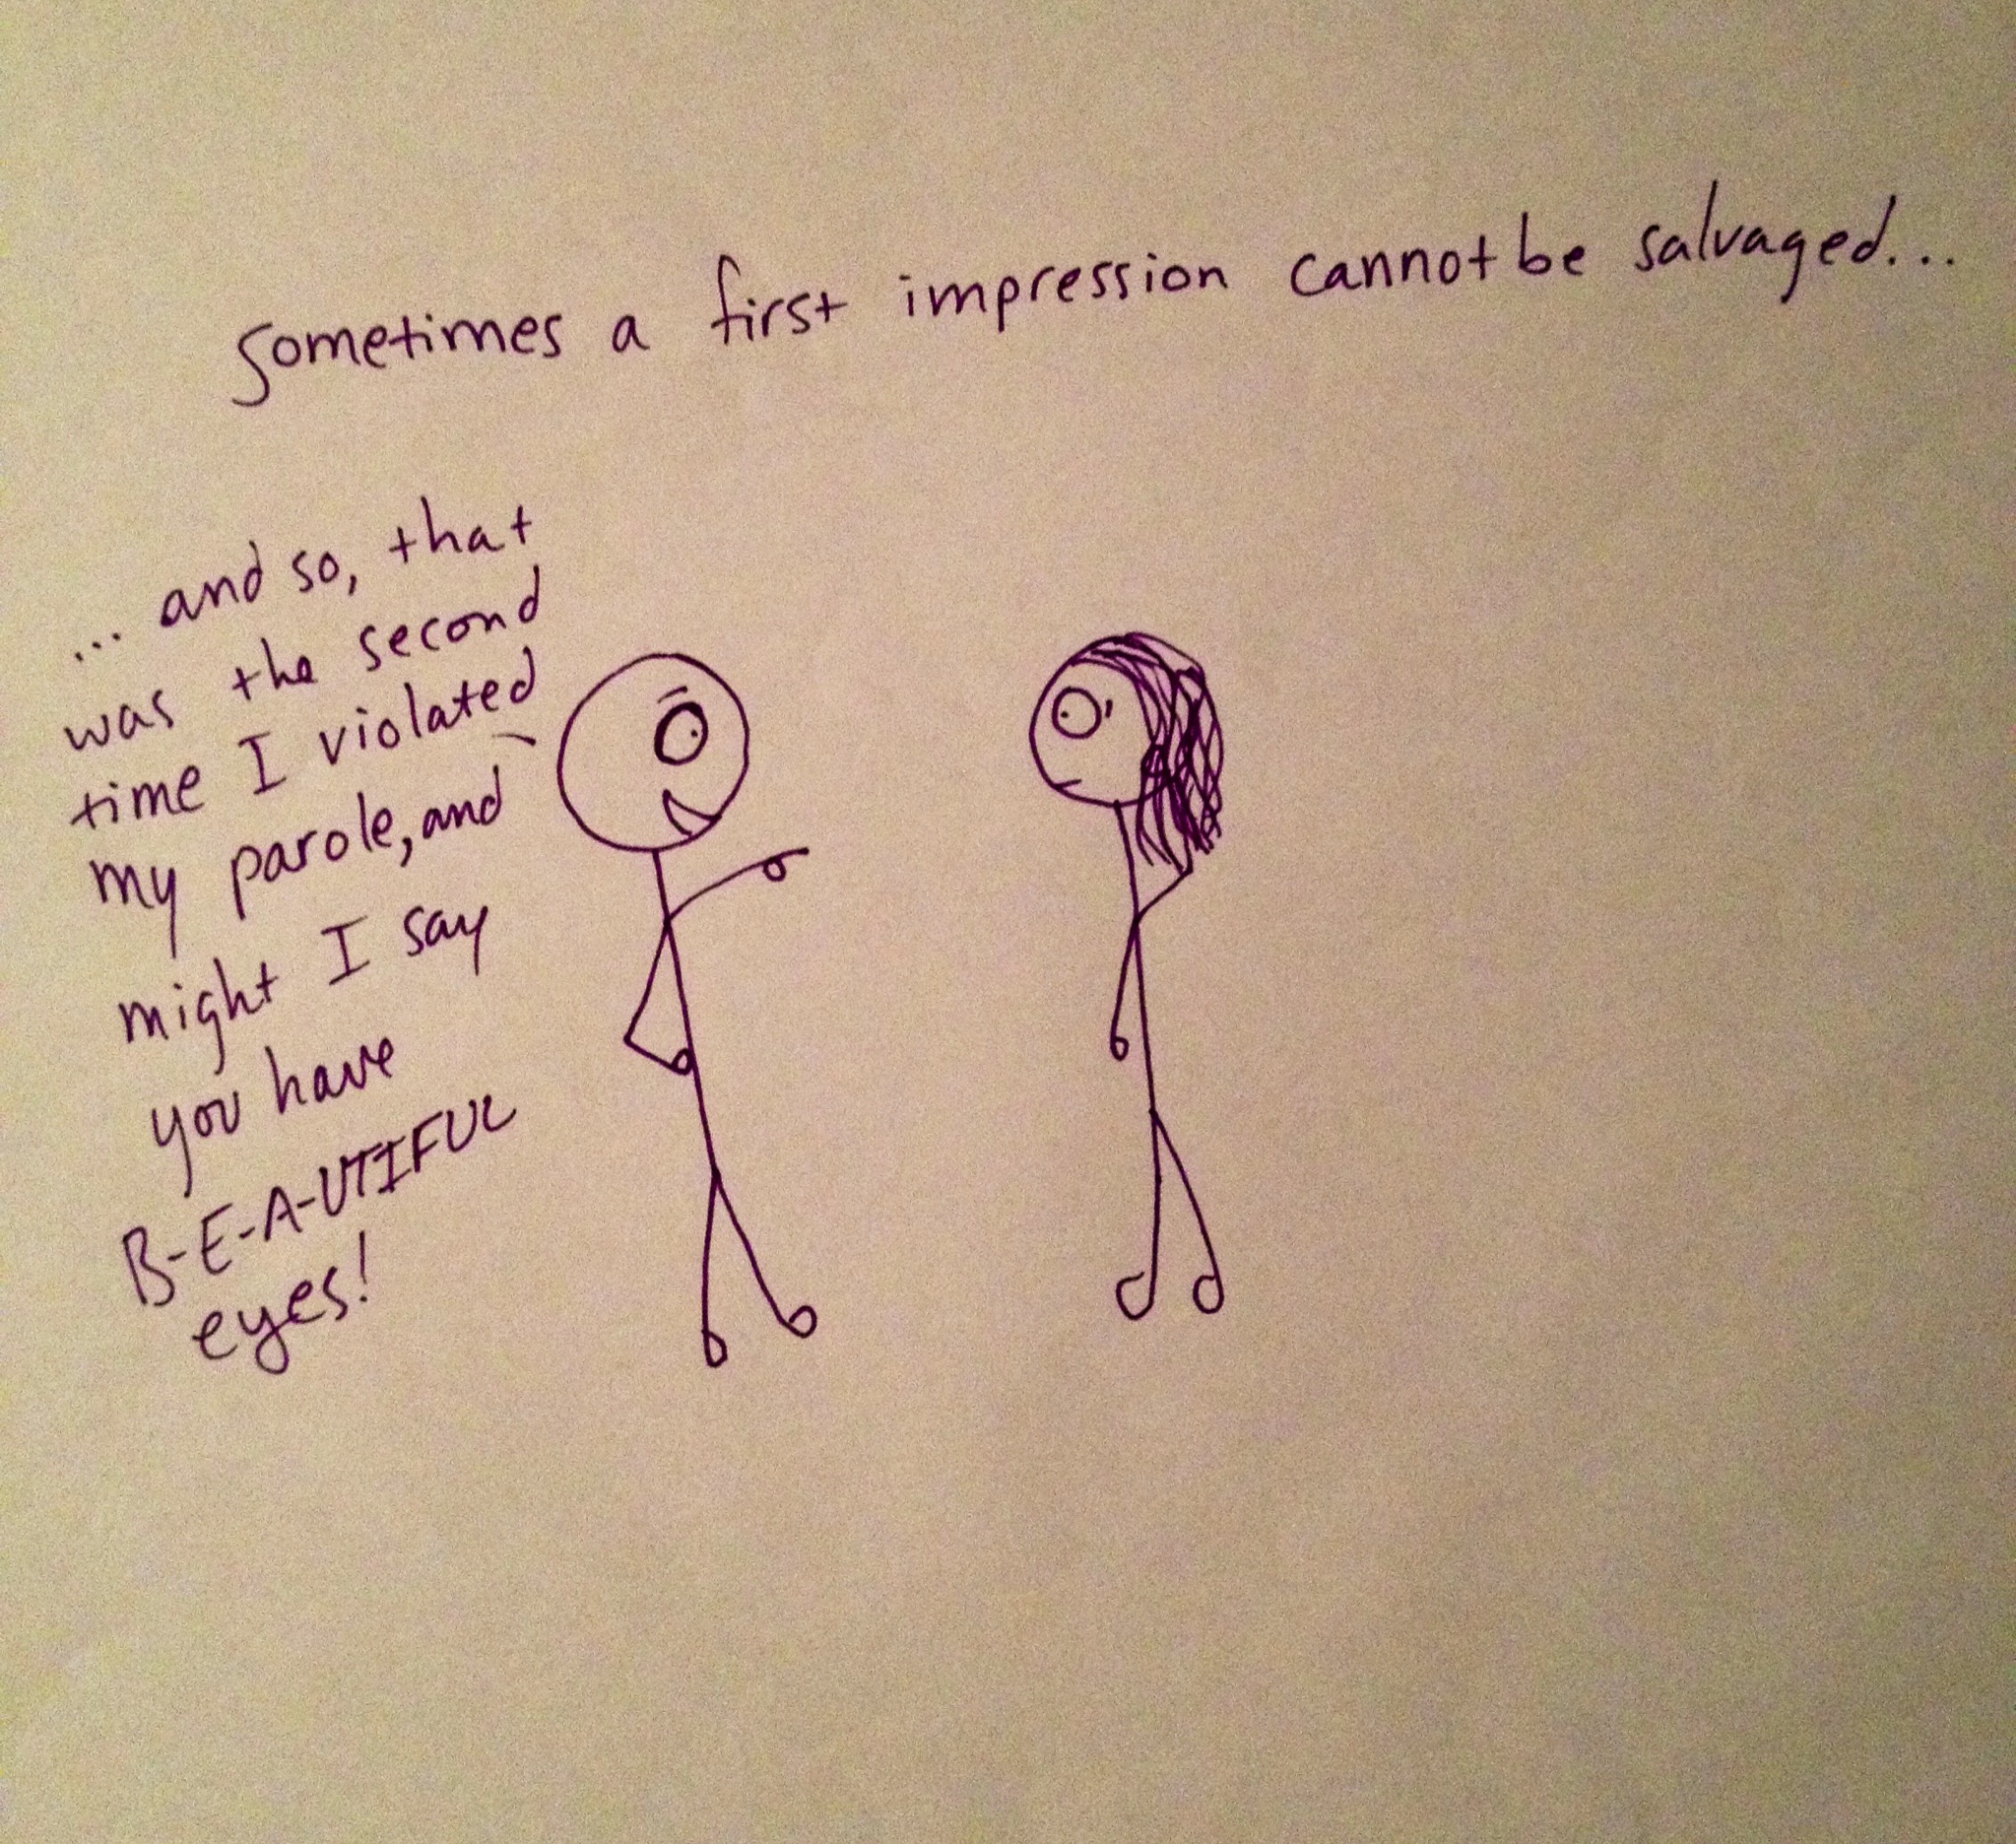 Sometimes a first impression cannot be salvaged...
... and so, that
was the second
time I violated
my parole, and
might I say
you have
B-E-A-UTIFUL
eyes!